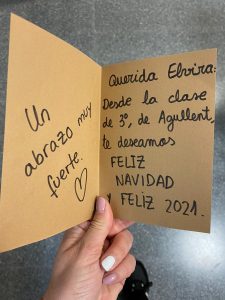 Un
abrazo muy
fuerte.
Querida Elvira:
Desde la clase
de 3º, de Agullent,
te deseamos
FELIZ
NAVIDAD
Y FELIZ 2021.